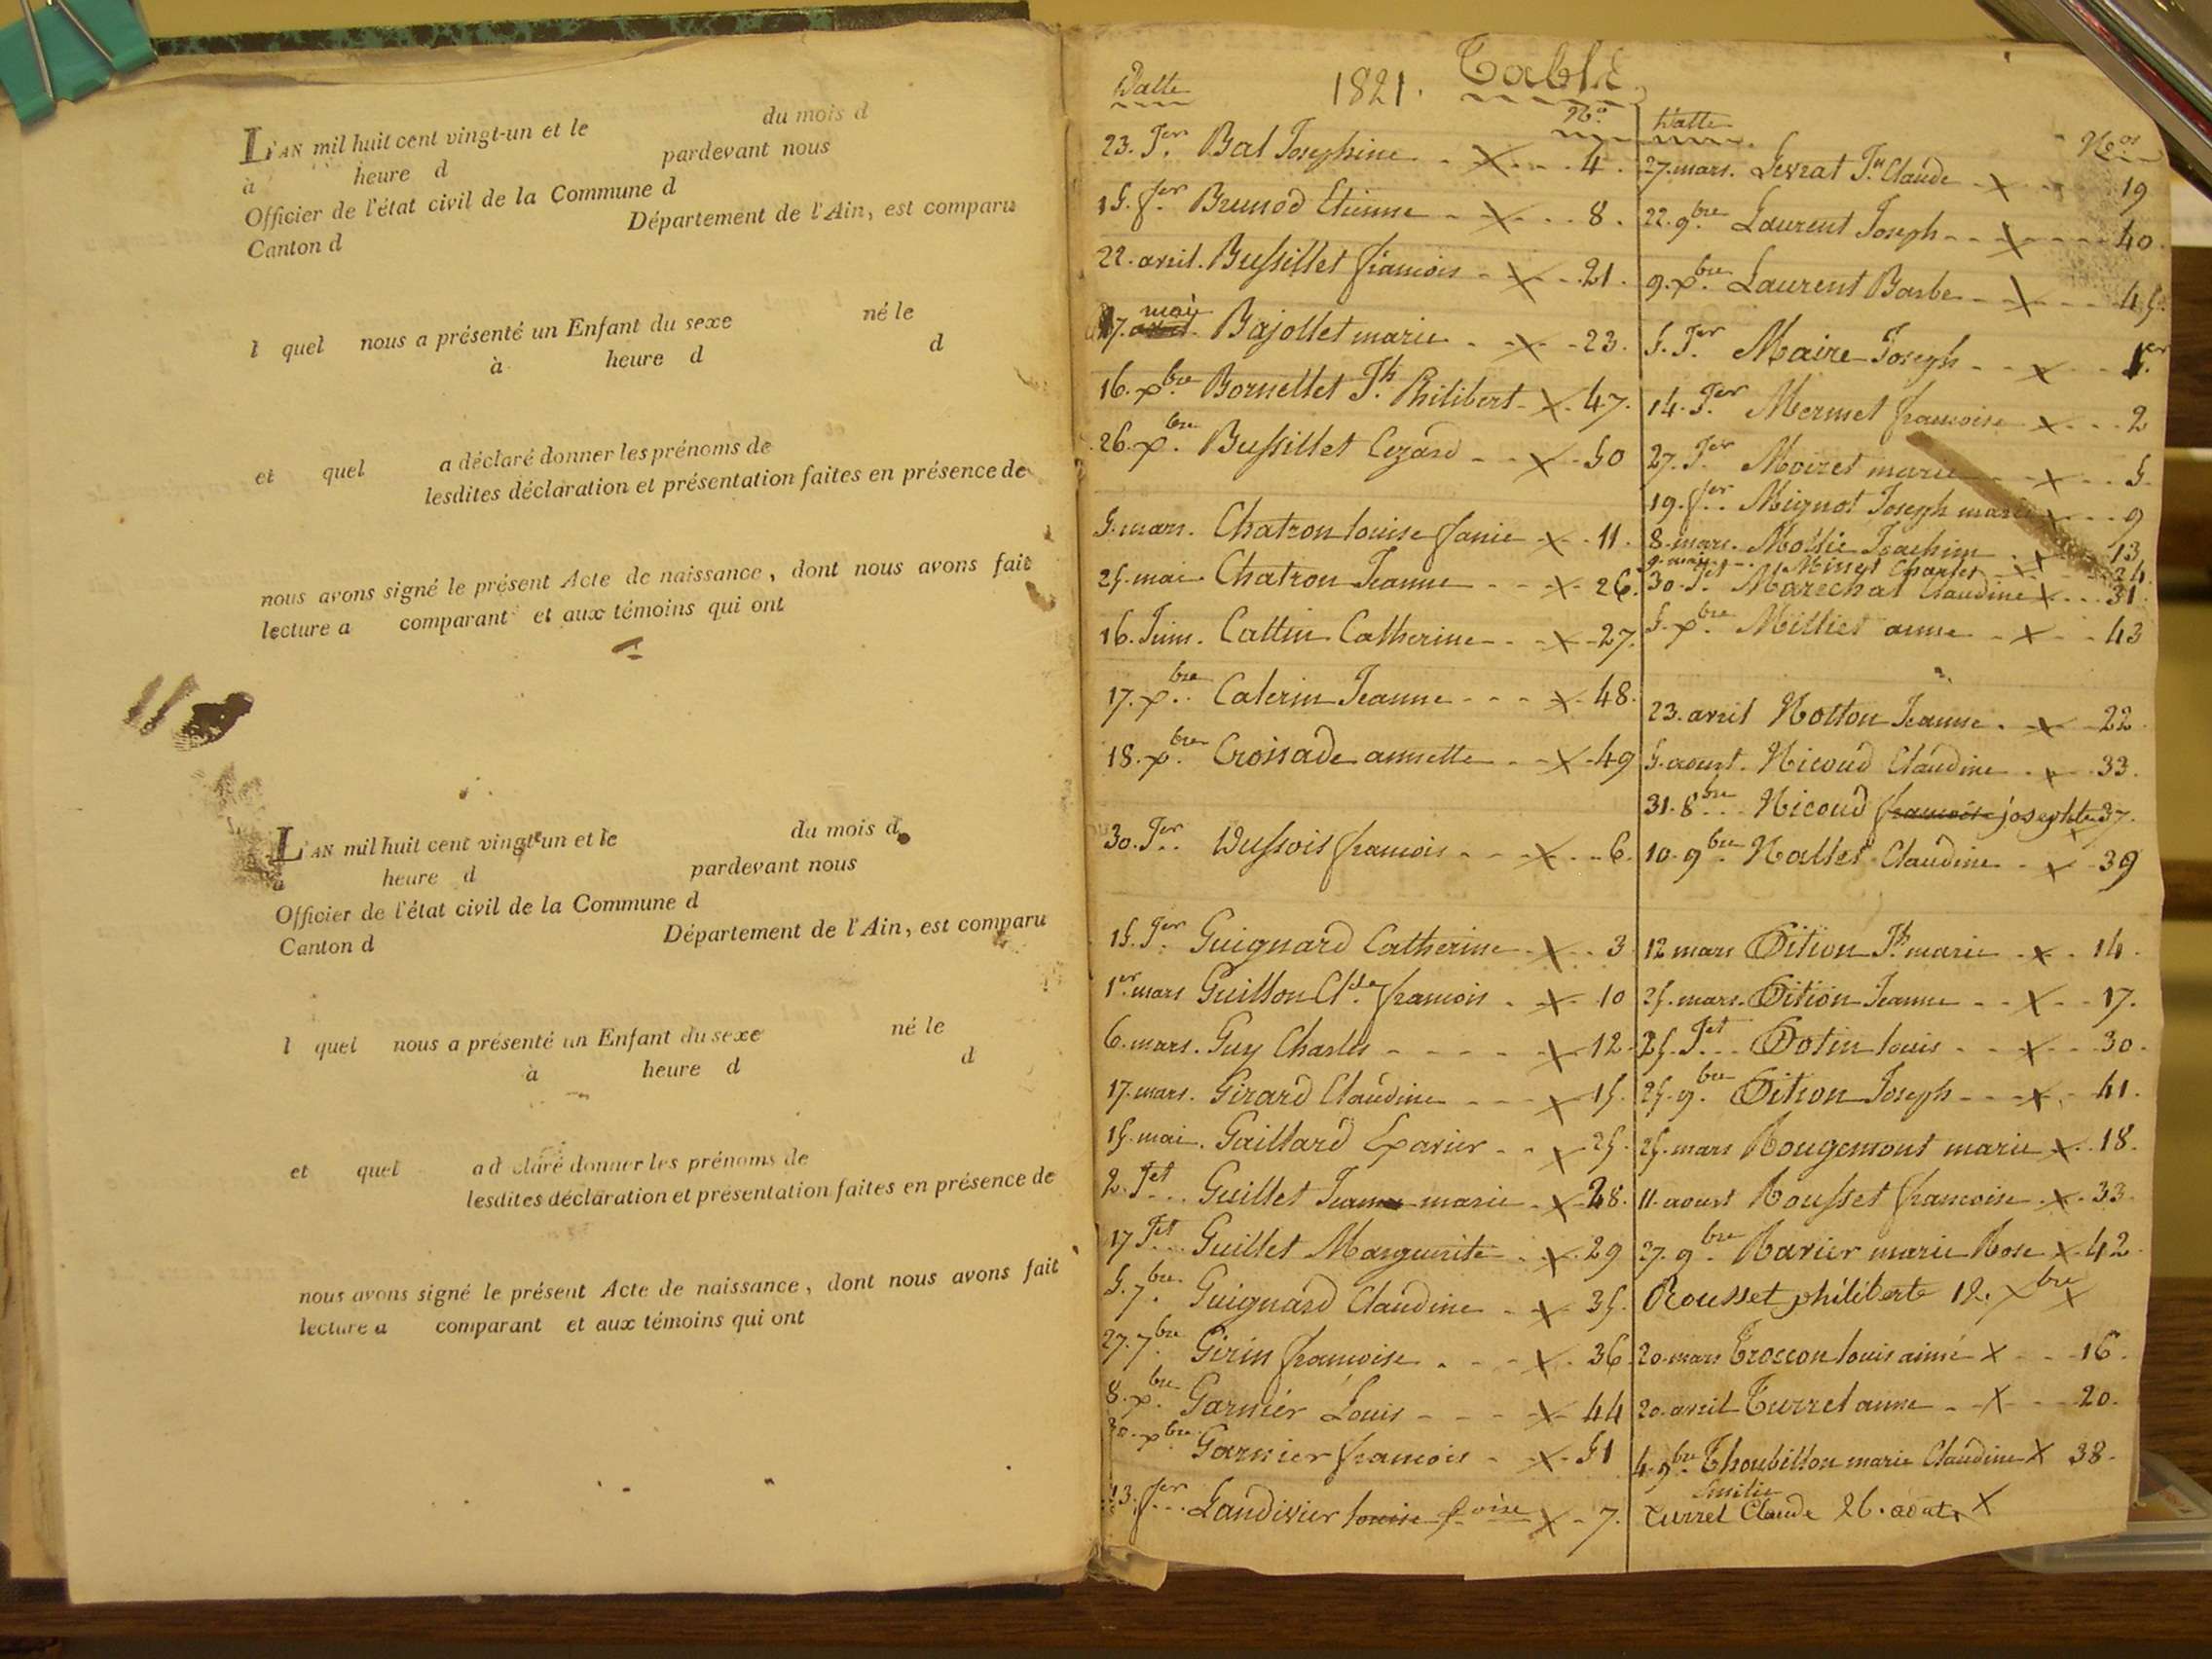 L'AN mil huit cent vingt-un et le du mois d
à heure d pardevant nous
Officier de l'état civil de la Commune d
Canton d Département de l'Ain, est comparu
l quel nous a présenté un Enfant du sexe né le
à heure d d
et quel a déclaré donner les prénoms de
lesdites déclaration et présentation faites en présence de
nous avons signé le présent Acte de naissance, dont nous avons fait
lecture a comparant et aux témoins qui ont
L'AN mil huit cent vingt-un et le du mois d
à heure d pardevant nous
Officier de l'état civil de la Commune d
Canton d Département de l'Ain, est comparu
l quel nous a présenté un Enfant du sexe né le
à heure d d
et quel a déclaré donner les prénoms de
lesdites déclaration et présentation faites en présence de
nous avons signé le présent Acte de naissance, dont nous avons fait
lecture a comparant et aux témoins qui ont
1821. Table
Datte Nº
23. Jer Bal Josephine X 4.
15. fer Brunod Etienne X 8.
22. avril. Bussillet francois X 21.
17. mai Bajollet marie X 23.
16. xbre Bornellet Jh Philibert X 47.
26. xbre Bussillet Cezard X 50
5. mars. Chatron louise fanie X 11.
25. mai Chatron Jeanne X 26.
16. Juin. Cattin Catherine X 27.
17. xbre Caterin Jeanne X 48.
18. xbre Croisade annette X 49
30. Jer Dussois francois X 6.
15. Jer Guignard Catherine X 3
1er mars Guillon Clde francois X 10
6. mars. Guy Charles X 12
17. mars. Girard Claudine X 15.
15. mai. Gaillard Exavier X 25.
2. Jet Guillet Jeanne marie X 28.
17 Jet Guillet Marguerite X 29
5. 7bre Guignard Claudine X 35.
27. 7bre Girin francoise X 36
8. xbre Garnier Louis X 44
30. xbre Garnier francois X 51
13. fer Landivier louise foise X 7.
Datte Nos
27. mars. Levrat Jn Claude X 19
22. 9bre Laurent Joseph X 40.
9. xbre Laurent Barbe X 45.
5. Jer Maire Joseph X 1er
14. Jer Mermet francoise X 2
27. Jer Moiret marie X 5.
19. fer Mignot Joseph marie X 9
8. mars. Mollie Joachim X 13
9. mai Minet Charles X 24.
30. Jet Marechal Claudine X 31.
5. xbre Milliet anne X 43
23. avril Notton Jeanne X 22.
5. aoust. Nicoud Claudine X 33.
31. 8bre Nicoud francoise josephte X 37.
10. 9bre Nallet Claudine X 39
12 mars Pition Jh marie X 14.
25. mars. Pition Jeanne X 17.
25. Jet Potin louis X 30.
25. 9bre Pition Joseph X 41.
25. mars Rougemont marie X 18.
11. aoust Rousset francoise X 33.
27. 9bre Ravier marie Rose X 42
Rousset philiberte 12. xbre X
20. mars Troccon louis aimé X 16.
20. avril Turrel anne X 20.
4. 9bre Thoubillon marie Claudine X 38.
Emilie
Turrel Claude 26. août X